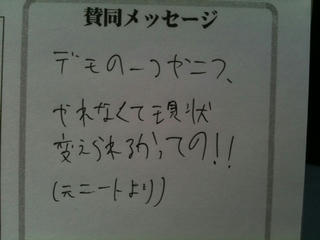 賛同メッセージ
デモの一つや二つ、
やれなくて現状
変えられるかっての!!
(元ニートより)